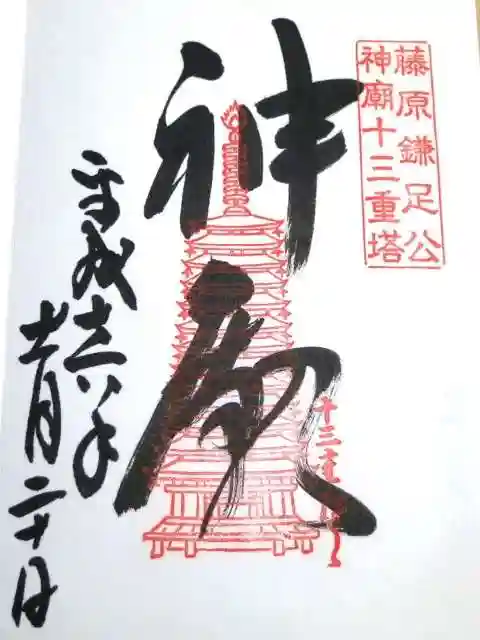 藤原鎌足公
神廟十三重塔
神廟
平成二十八年
十一月二十日